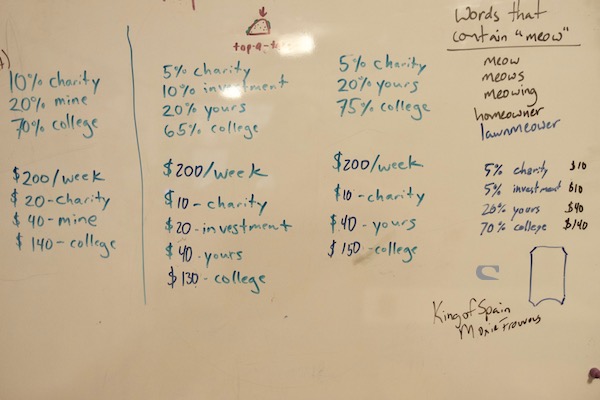 10% charity
20% mine
70% college
$200/week
$20-charity
$40-mine
$140-college
5% charity
10% investment
20% yours
65% college
$200/week
$10-charity
$20-investment
$40-yours
$130-college
5% charity
20% yours
75% college
$200/week
$10-charity
$40-yours
$150-college
Words that
contain "meow"
meow
meows
meowing
homeowner
lawnmeower
5% charity $10
5% investment $10
20% yours $40
70% college $140
King of Spain